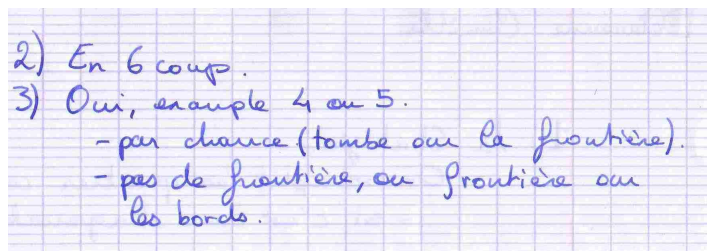 2) En 6 coup.
3) Oui, exauple 4 ou 5.
- par chance (tombe sur la frontière).
- pas de frontière, ou frontière sur
les bords.